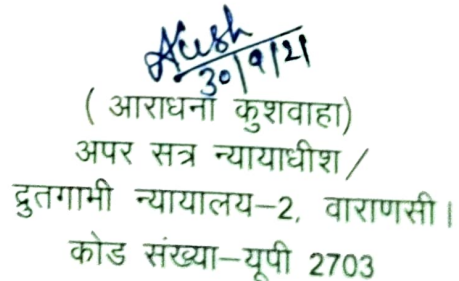 30/9/21
( आराधना कुशवाहा)
अपर सत्र न्यायाधीश /
द्रुतगामी न्यायालय–2, वाराणसी।
कोड संख्या–यूपी 2703